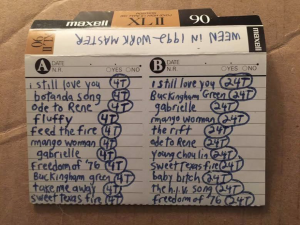 maxell
XLII
90
maxell
WEEN IN 1992 - WORK MASTER
90
A DATE
N.R. YES NO
i still love you 4T
botanda song 4T
ode to Rene 4T
fluffy 4T
feed the fire 4T
mango woman 4T
gabrielle 4T
freedom of '76 4T
Buckingham green 4T
take me away 4T
sweet texas fire 4T
B DATE
N.R. YES NO
i still love you 24T
Buckingham Green 24T
gabrielle 24T
mango woman 24T
the rift 24T
ode to Rene 24T
young chou lin 24T
sweet Texas fire 24T
baby bitch 24T
the h.i.v. song 24T
freedom of '76 24T